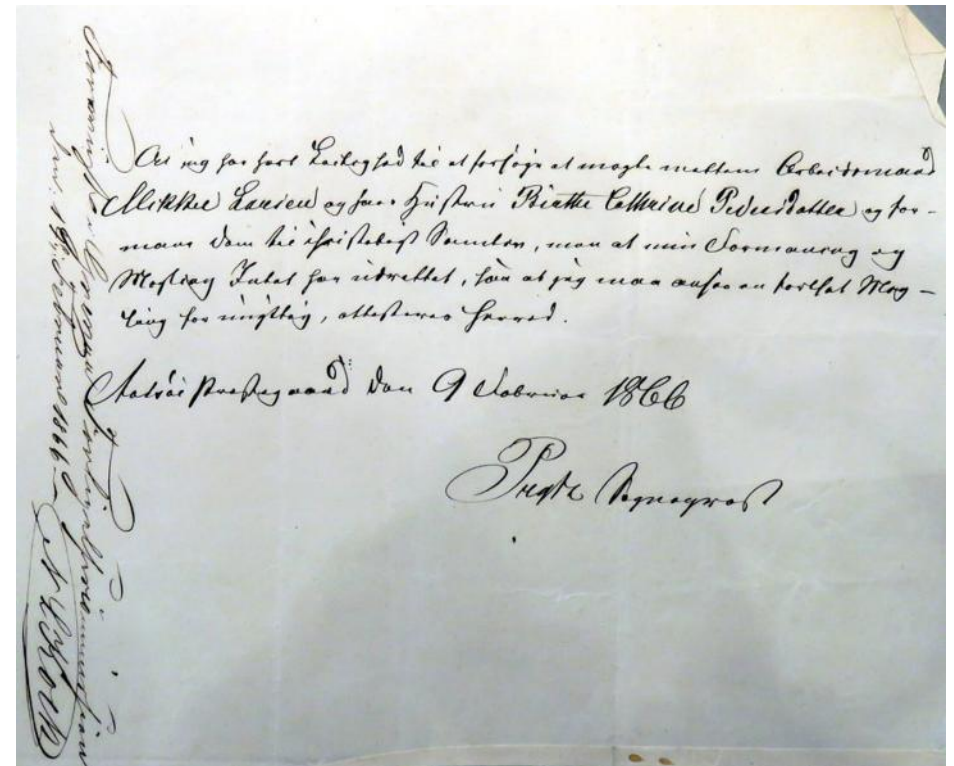 At jeg har havt Leilighed til at forsøge at mægle mellem Arbeidsmand
Mikkel Larsen og hans Hustru Birthe Cathrine Pedersdatter og for-
mane dem til christeligt Samliv, men at min Formaning og
Mægling Intet har udrettet, saa at jeg maa ansee en fortsat Mæg-
ling for unyttig, attesteres herved.
Præstegaard den 9 Februar 1866
Sognepræst
Foreviist i Grenaa Forligelsescommission
den Februar 1866